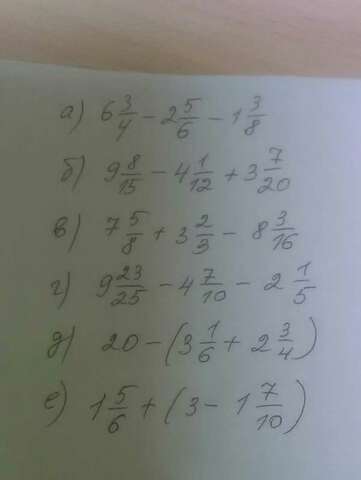 а) 6 3/4 − 2 5/6 − 1 3/8
б) 9 8/15 − 4 1/12 + 3 7/20
в) 7 5/8 + 3 2/3 − 8 3/16
г) 9 23/25 − 4 7/10 − 2 1/5
д) 20 − (3 1/6 + 2 3/4)
е) 1 5/6 + (3 − 1 7/10)